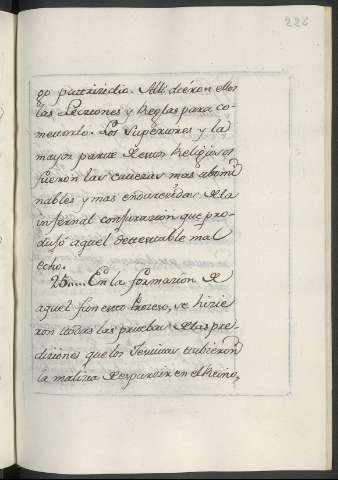 226
go patrisidio. Alli dieron ellos
las Lecciones y Reglas para co-
meterlo. Los Superiores y la
mayor parte de estos Religiosos
fueron las cavezas mas abomi
nables y mas endurecidas de la
infernal conjurazion que pro-
dujo aquel detestable mal
echo.
25.... En la formazion de
aquel funesto Proceso, se hizie
ron todas las pruebas de las pre-
diziones que los Jesuitas tubieron
la malizia de esparzir en el Reino,